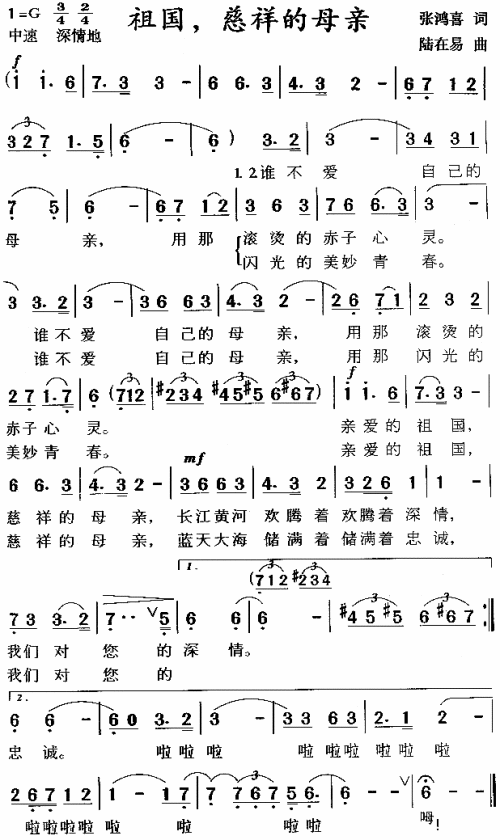 1=G 3/4 2/4 祖国，慈祥的母亲 张鸿喜 词
中速 深情地 陆在易 曲
f
( i i. 6 | 7. 3 3 - | 6 6. 3 | 4. 3 2 - | 6 7 1 2 |
3 2 7 1. 5 | 6 - | 6 ) 3. 2 | 3 - | 3 4 3 1 |
1.2谁 不 爱 自己的
7 5 | 6 - | 6 7 1 2 | 3 6 3 | 7 6 6. 3 | 3 - |
母 亲, 用那 滚烫的赤子心 灵。
闪光的美妙青 春。
3 3. 2 | 3 - | 3 6 6 3 | 4. 3 2 - | 2 6 7 1 | 2 3 2 |
谁不爱 自己的母 亲, 用那 滚烫的
谁不爱 自己的母 亲, 用那 闪光的
2 7 1. 7 | 6 ( 7 1 2 | #2 3 4 #4 5 #5 6 #6 7 ) | i i. 6 | 7. 3 3 - |
f
赤子心 灵。 亲爱的祖国,
美妙青 春。 亲爱的祖国,
mf
6 6. 3 | 4. 3 2 - | 3 6 6 3 | 4. 3 2 | 3 2 6 | 1 - |
慈祥的母亲, 长江黄河 欢腾着 欢腾着深情,
慈祥的母亲, 蓝天大海 储满着 储满着忠诚,
1.
( 7 1 2 #2 3 4
7 3 3. 2 | 7. . V 5 | 6 6 | 6 - | #4 5 #5 6 #6 7 ) :|
我们对 您 的深 情。
我们对 您 的
2.
6 6 - | 6 0 3. 2 | 3 - | 3 3 6 3 | 2. 1 2 - |
忠 诚。 啦啦 啦 啦 啦啦 啦 啦 啦
2 6 7 1 2 | 1 - | 1 7 | 7 7 6 7 5 6. | 6 - V | 6 - ||
啦啦啦啦 啦 啦 啦 啦 啦 呣!